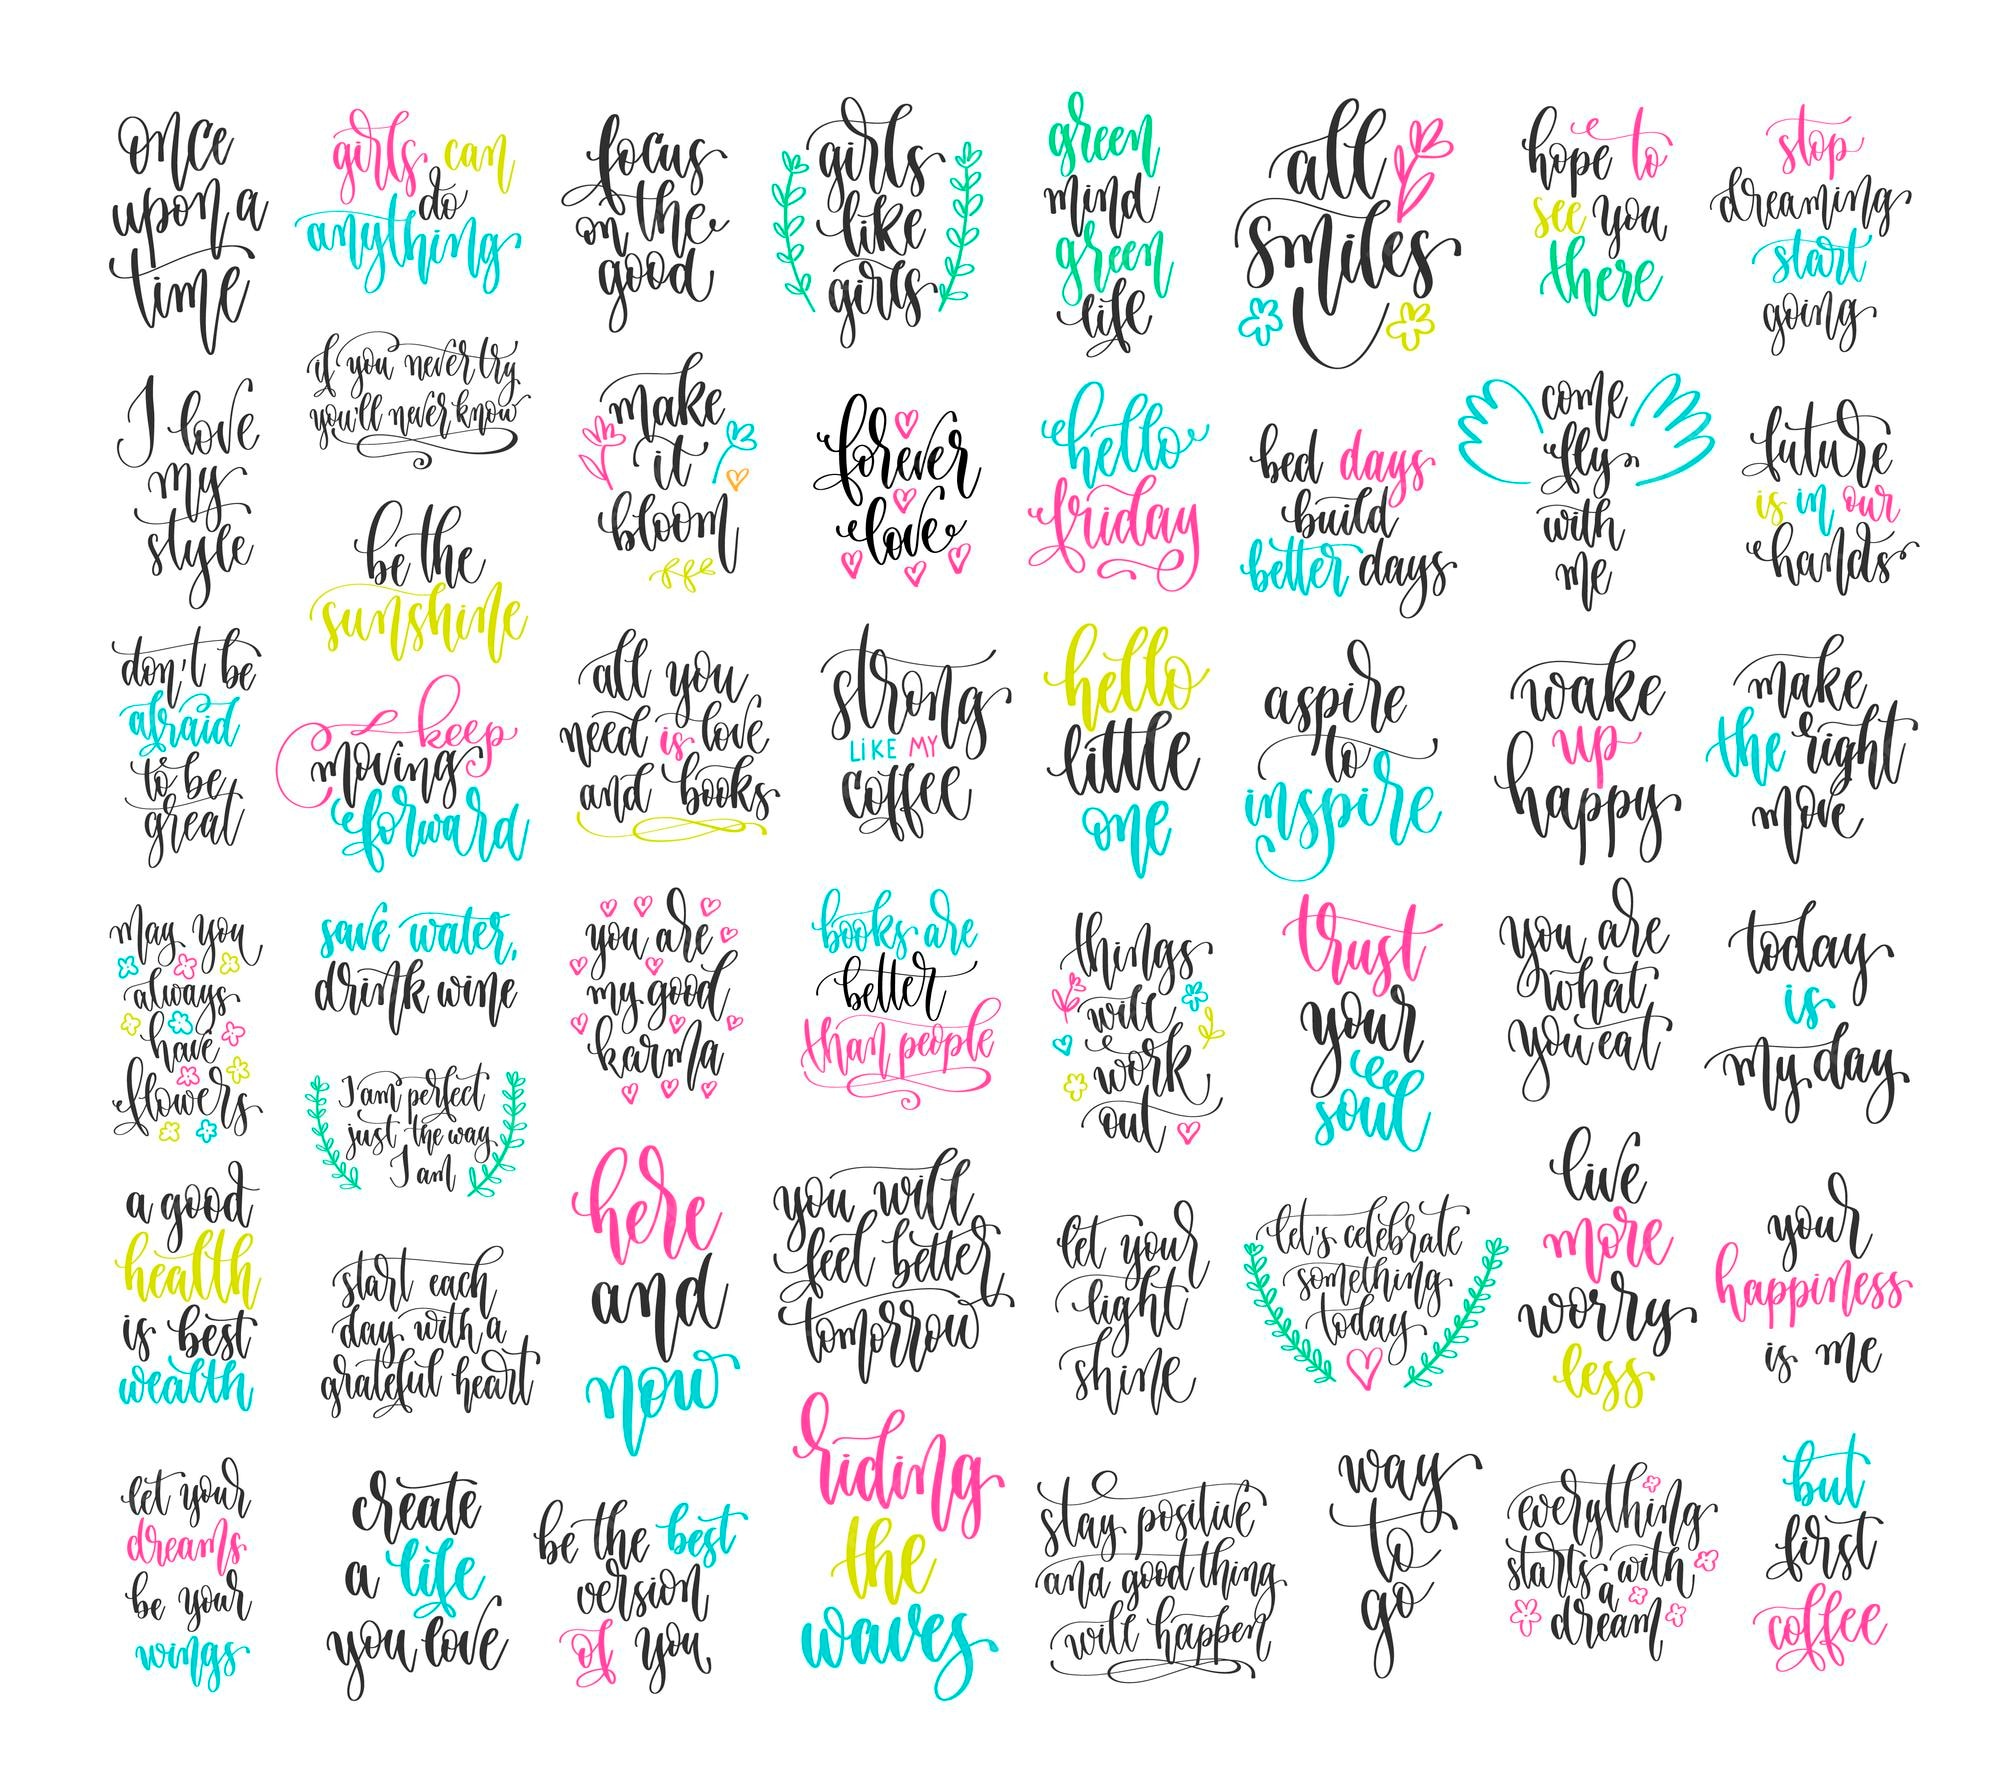 once
upon a
time
girls can
do
anything
focus
on the
good
girls
like
girls
green
mind
green
life
all
smiles
hope to
see you
there
stop
dreaming
start
going
I love
my
style
if you never try
you'll never know
be the
sunshine
make
it
bloom
forever
love
hello
friday
bed days
build
better days
come
fly
with
me
future
is in our
hands
don't be
afraid
to be
great
keep
moving
forward
all you
need is love
and books
strong
LIKE MY
coffee
hello
little
one
aspire
to
inspire
wake
up
happy
make
the right
move
may you
always
have
flowers
save water,
drink wine
I am perfect
just the way
I am
you are
my good
karma
books are
better
than people
things
will
work
out
trust
your
soul
you are
what
you eat
today
is
my day
a good
health
is best
wealth
start each
day with a
grateful heart
here
and
now
you will
feel better
tomorrow
let your
light
shine
let's celebrate
something
today
live
more
worry
less
your
happiness
is me
let your
dreams
be your
wings
create
a life
you love
be the best
version
of you
riding
the
waves
stay positive
and good thing
will happen
way
to
go
everything
starts with
a
dream
but
first
coffee